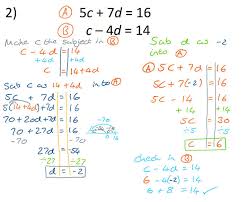 2) Ⓐ 5c + 7d = 16
Ⓑ c − 4d = 14
Make c the subject in Ⓑ
c − 4d = 14
+4d +4d
c = 14+4d
Sub c as 14+4d into Ⓐ
5c + 7d = 16
5(14+4d)+7d = 16
70+20d+7d = 16
70 + 27d = 16
−70 −70
27d = −54
÷27 ÷27
d = −2
Sub d as −2
into Ⓐ
5c + 7d = 16
5c + 7(−2) = 16
5c − 14 = 16
5c = 30
÷5 ÷5
c = 6
check in Ⓑ
c − 4d = 14
6 − 4(−2) = 14
6 + 8 = 14 ✓